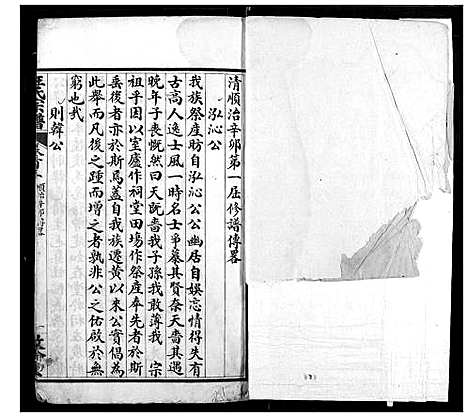 清順治辛卯第一屆修譜傳畧
泓沁公
我族祭產昉自泓沁公公幽居自娛忘情得失有
古高人逸士風一時名士爭慕其賢奈天嗇其遇
晚年子喪慨然曰天既嗇我子孫我敢薄我 宗
祖乎因以室廬作祠堂田場作祭產奉先者於斯
垂後者亦於斯焉蓋自我族遷黄以來公實倡為
此舉而凡後之踵而增之者孰非公之佑啟於無
窮也哉
則韓公
氏宗譜